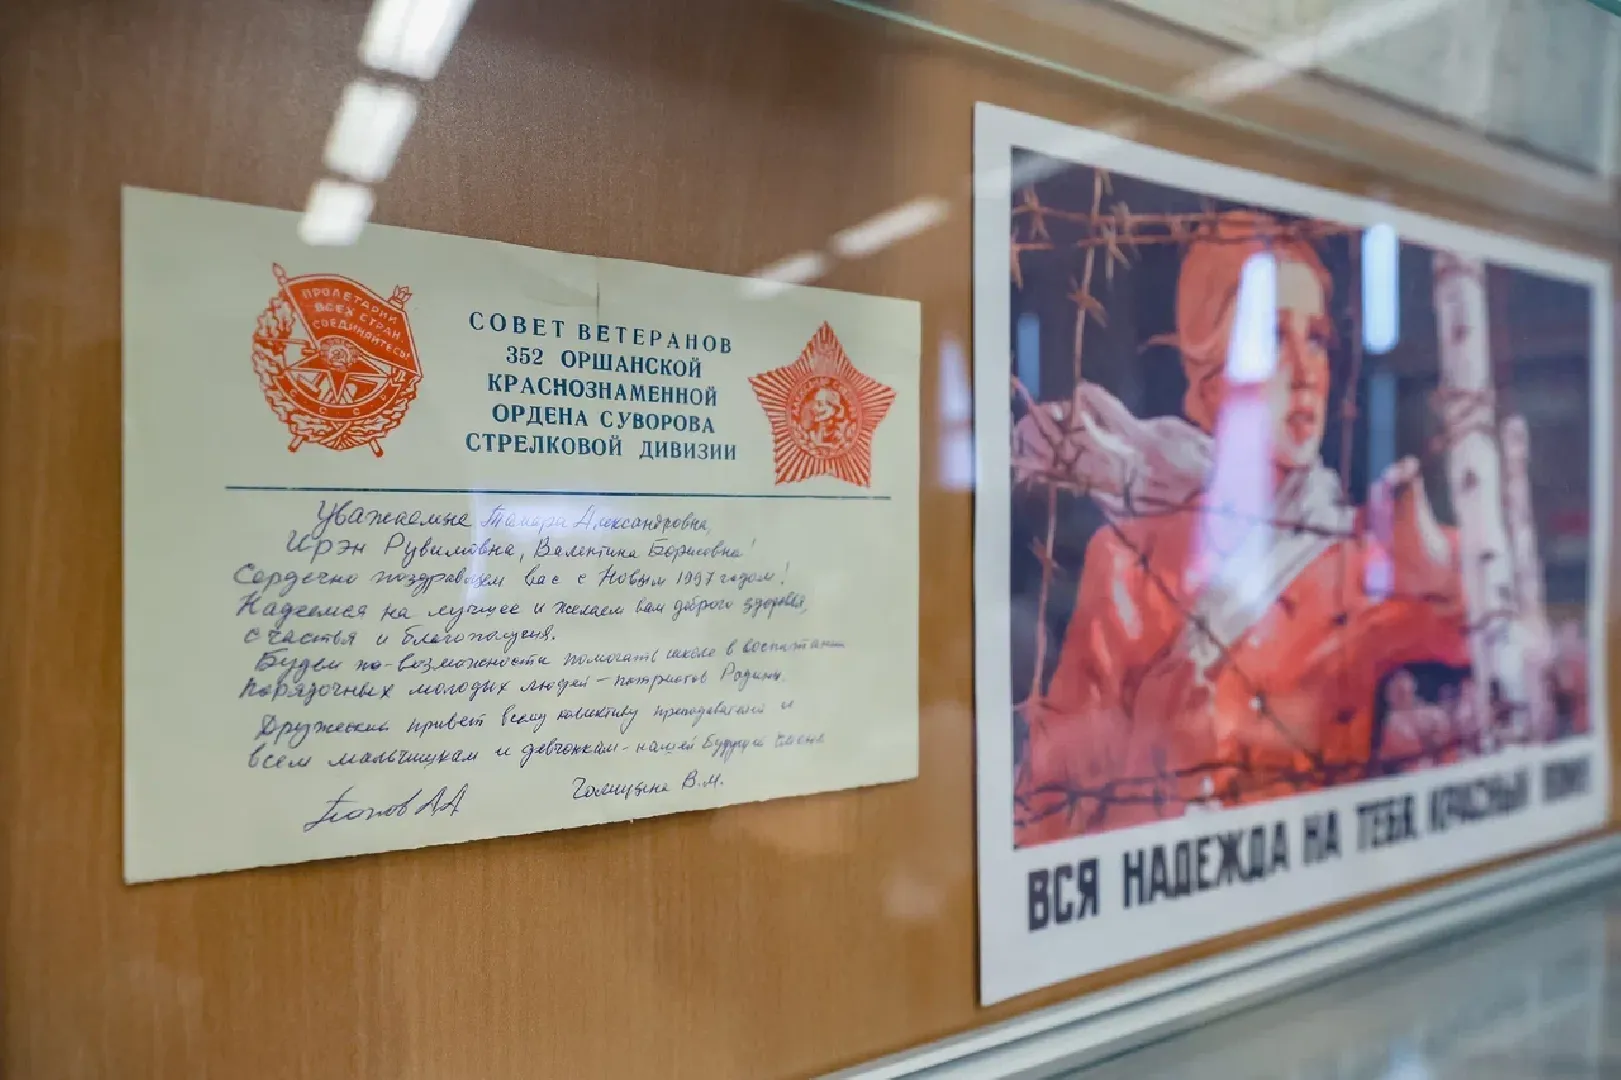 ПРОЛЕТАРИИ
ВСЕХ СТРАН,
СОЕДИНЯЙТЕСЬ!
СССР
СОВЕТ ВЕТЕРАНОВ
352 ОРШАНСКОЙ
КРАСНОЗНАМЕННОЙ
ОРДЕНА СУВОРОВА
СТРЕЛКОВОЙ ДИВИЗИИ
Уважаемые Тамара Александровна,
Ирэн Рувимовна, Валентина Борисовна!
Сердечно поздравляем вас с Новым 1997 годом!
Надеемся на лучшее и желаем вам доброго здоровья,
счастья и благополучия.
Будем по-возможности помогать школе в воспитании
порядочных молодых людей - патриотов Родины.
Дружеский привет всему коллективу преподавателей и
всем мальчишкам и девчонкам - нашей будущей смене
Попов А.А. В.М.
ВСЯ НАДЕЖДА НА ТЕБЯ, КРАСНЫЙ ВОИН!